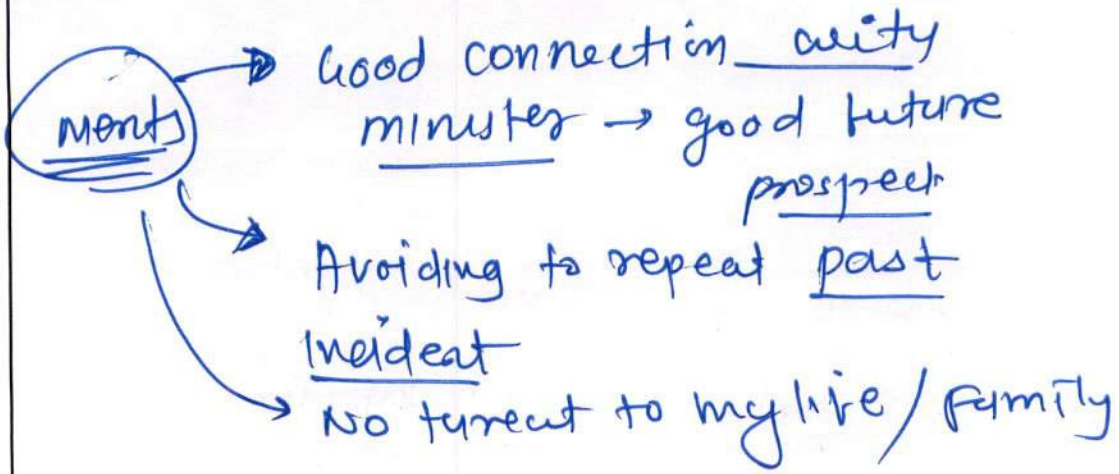 Good connection with
merits
minister → good future
prospect
Avoiding to repeat past
Incident
No threat to my life / Family